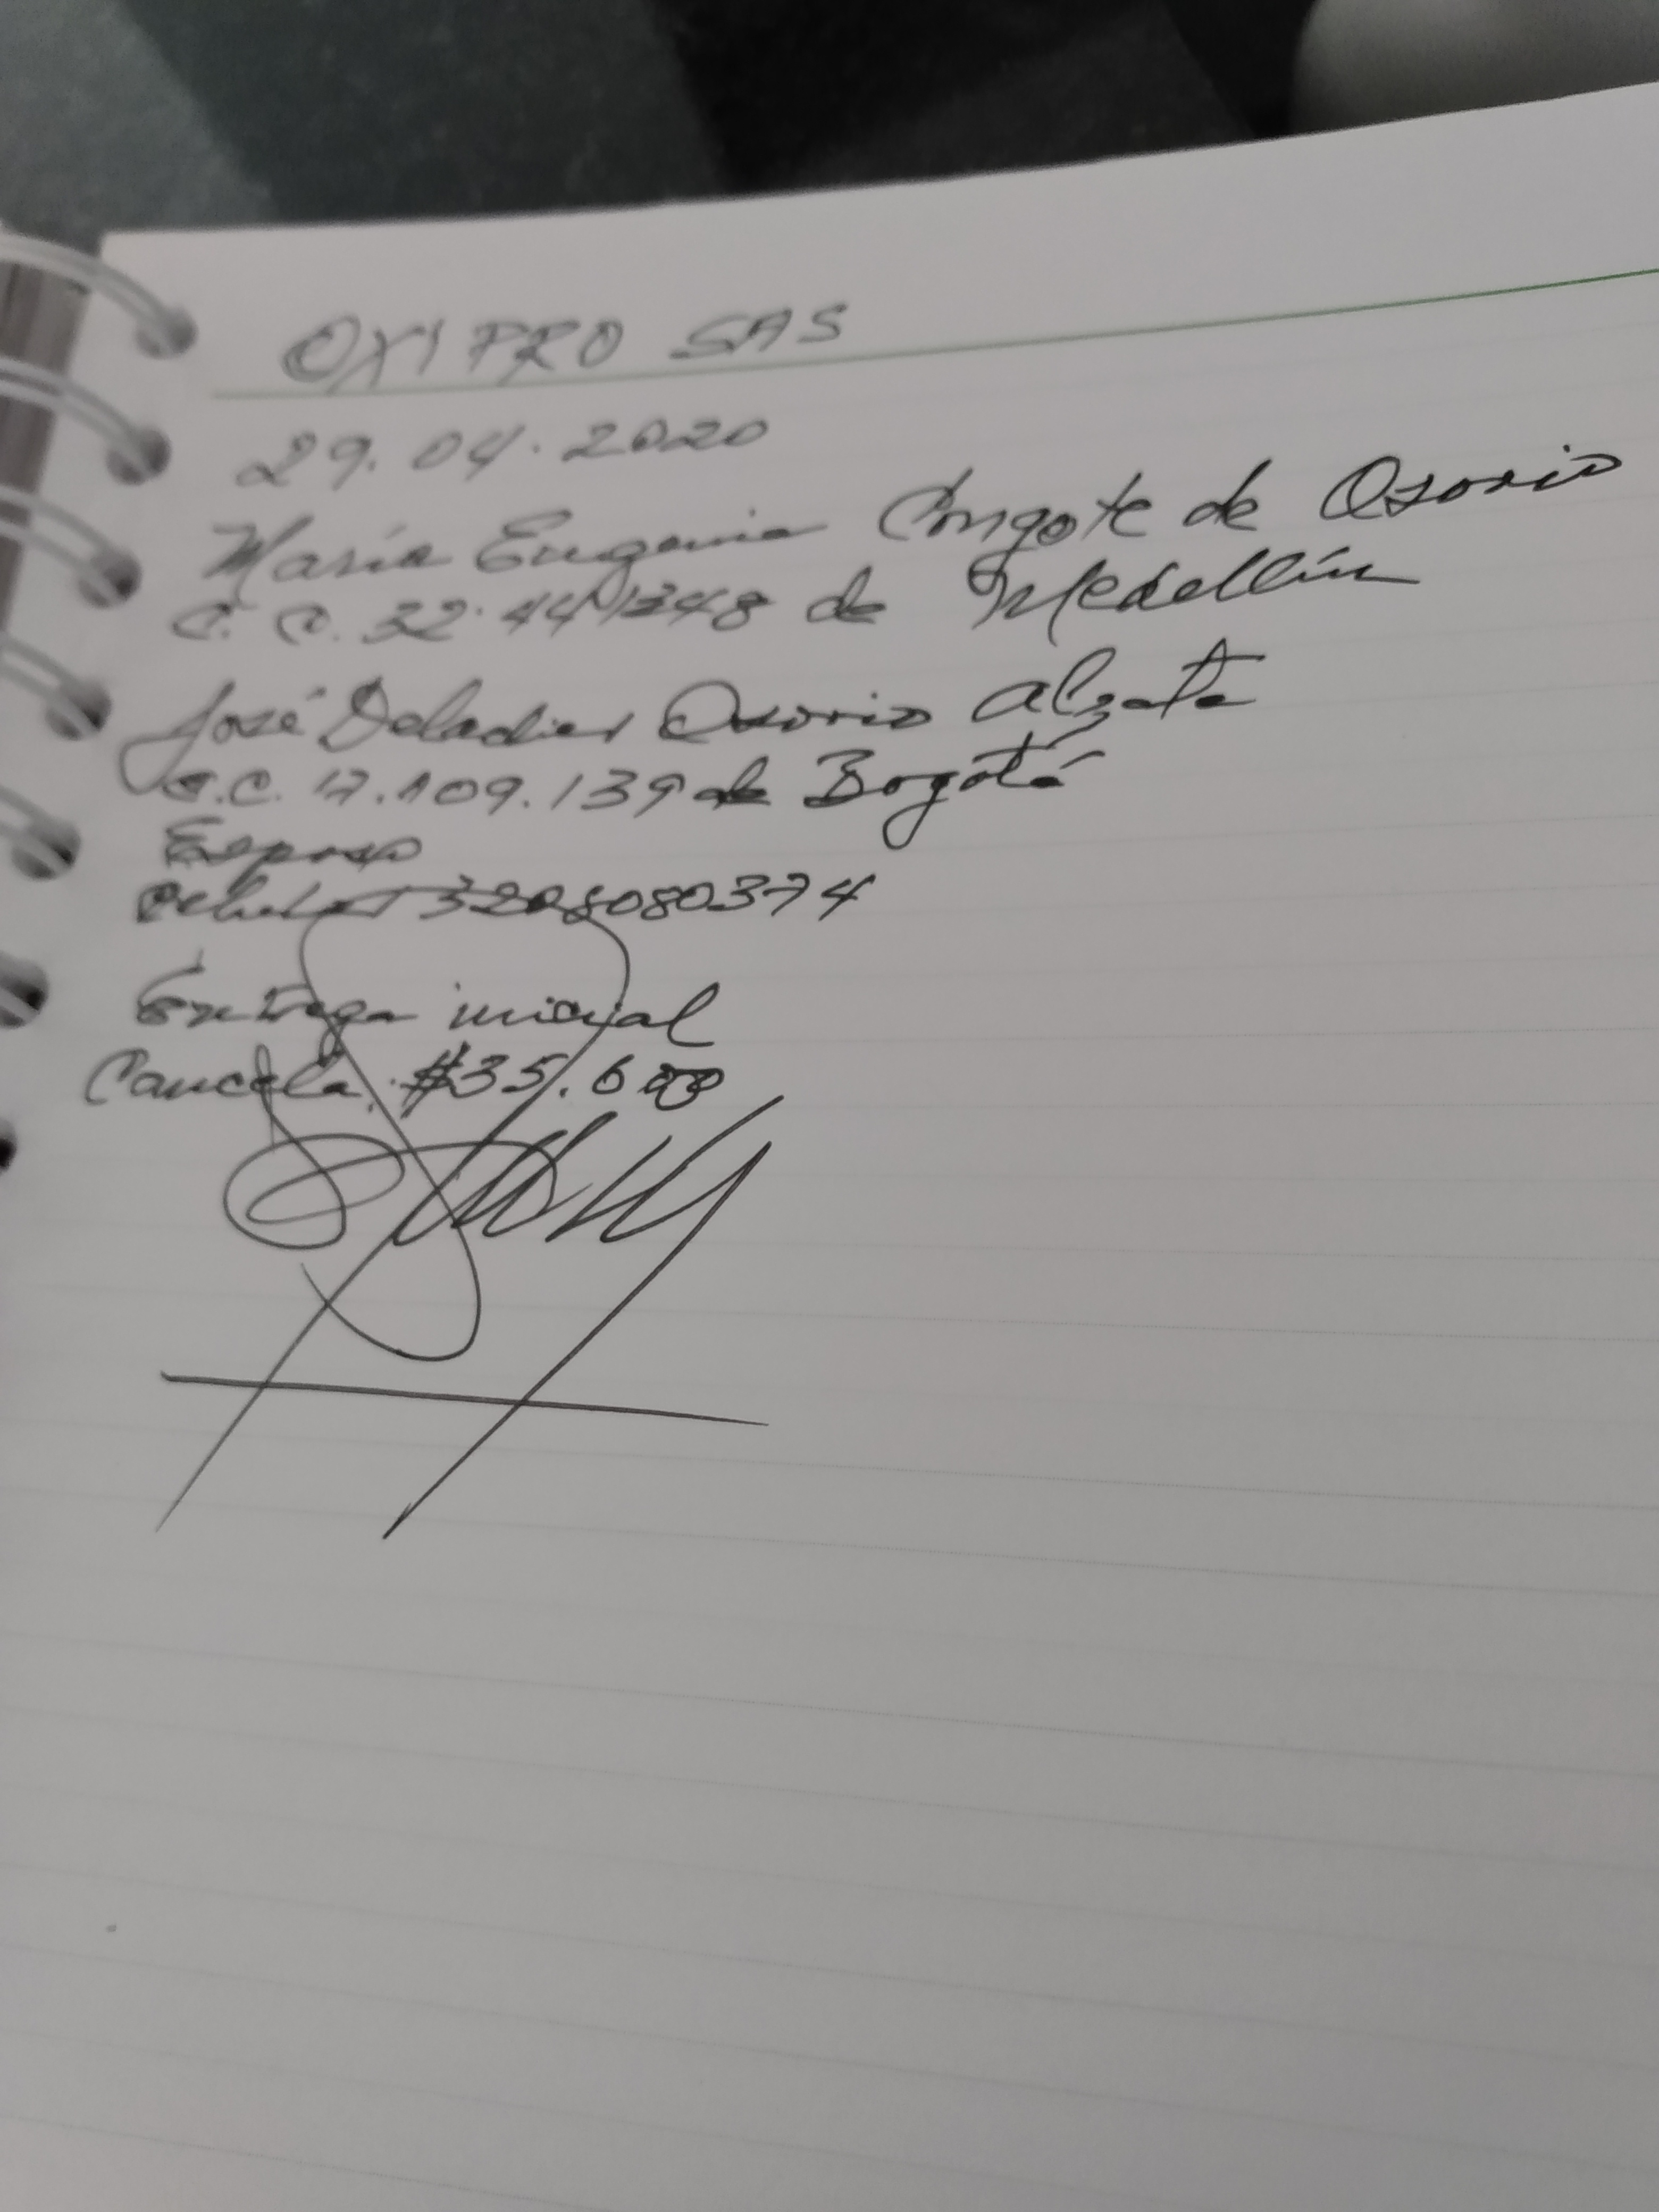 OXIPRO SAS
29.04.2020
María Eugenia Congote de Osorio
C.C. 32.441348 de Medellín
José Deladier Osorio Alzate
C.C. 17.109.139 de Bogotá
Esposo
Celular 3208080374
Entrega inicial
Cancela. $35.600